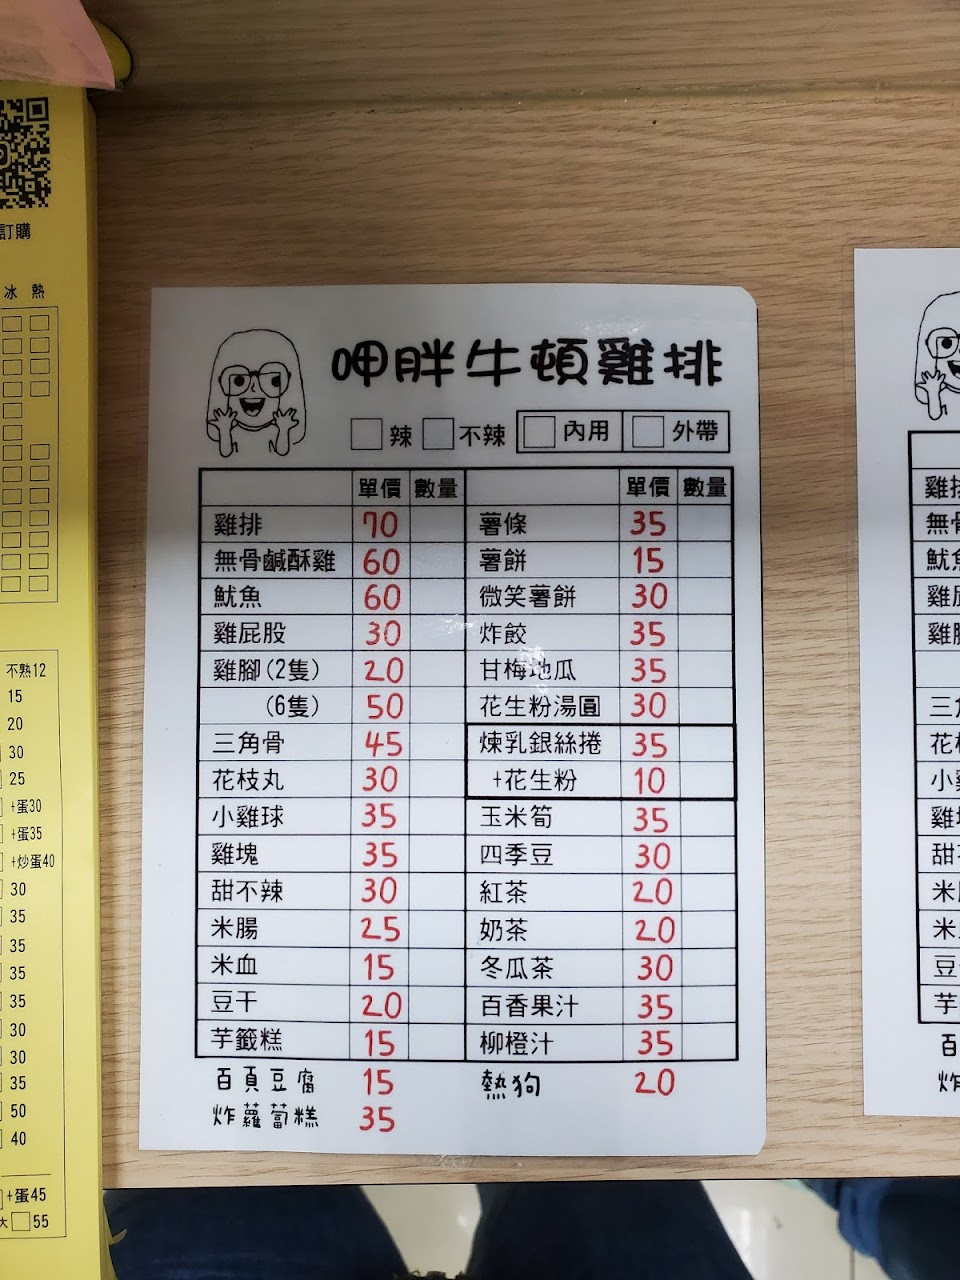 訂購
冰 熱
不熟12
15
20
30
25
+蛋30
+蛋35
+炒蛋40
30
35
35
35
35
30
30
35
50
40
+蛋45
大 55
呷胖牛頓雞排
辣 不辣 內用 外帶
單價 數量 單價 數量
雞排 70 薯條 35
無骨鹹酥雞 60 薯餅 15
魷魚 60 微笑薯餅 30
雞屁股 30 炸餃 35
雞腳(2隻) 20 甘梅地瓜 35
(6隻) 50 花生粉湯圓 30
三角骨 45 煉乳銀絲捲 35
花枝丸 30 +花生粉 10
小雞球 35 玉米筍 35
雞塊 35 四季豆 30
甜不辣 30 紅茶 20
米腸 25 奶茶 20
米血 15 冬瓜茶 30
豆干 20 百香果汁 35
芋籤糕 15 柳橙汁 35
百頁豆腐 15 熱狗 20
炸蘿蔔糕 35
雞排
無骨
魷魚
雞屁
雞腳
三角
花枝
小雞
雞塊
甜不
米腸
米血
豆干
芋籤
百
炸